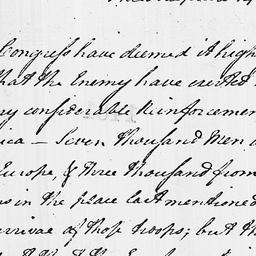 Congress have deemed it high
that the Enemy have
ny considerable Reinforcemen
ica — Seven thousand Men
Europe, & three thousand from
s in the place last mentioned
rrival of those troops; but th